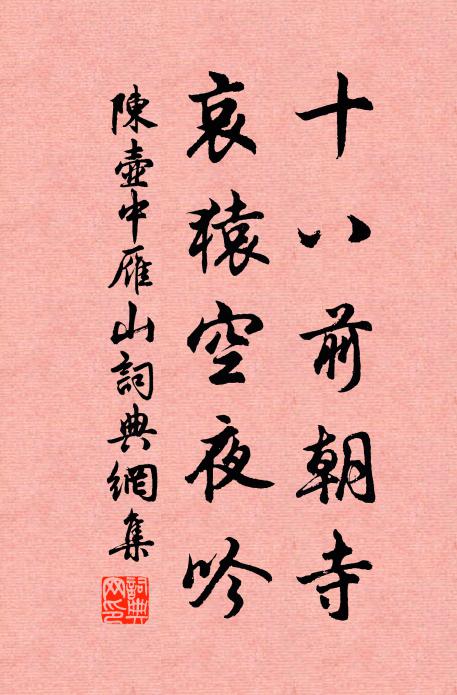 十八前朝寺
哀猿空夜吟
陳壺中雁山詞典網集
詞典網印